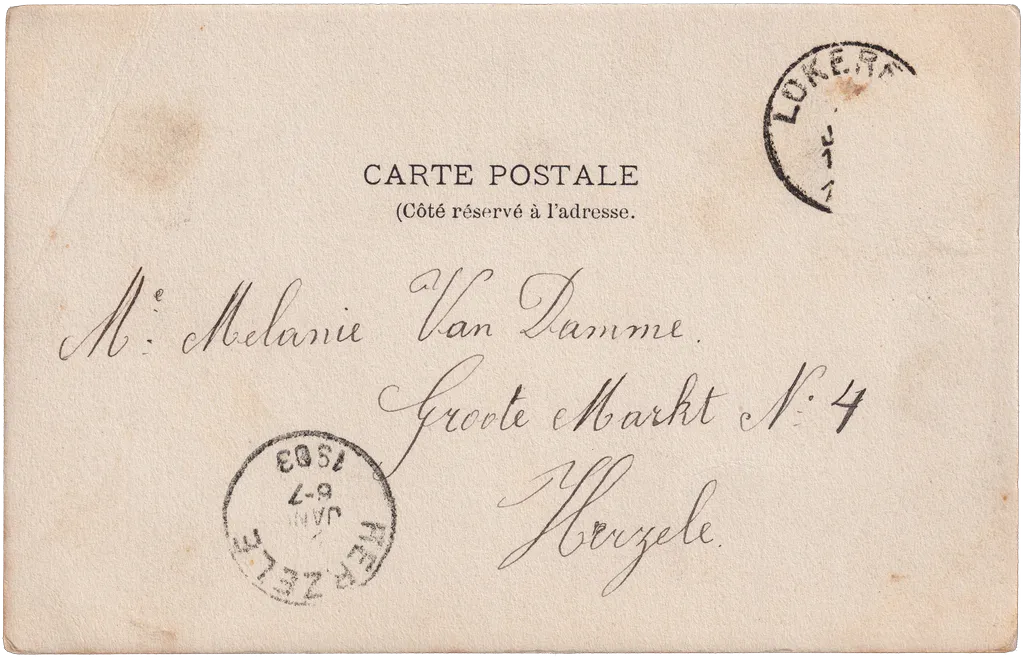 LOKERE
CARTE POSTALE
(Côté réservé à l'adresse.
Me. Melanie Van Damme.
Groote Markt N. 4
Herzele.
HERZELE
JAN
6-7
1903